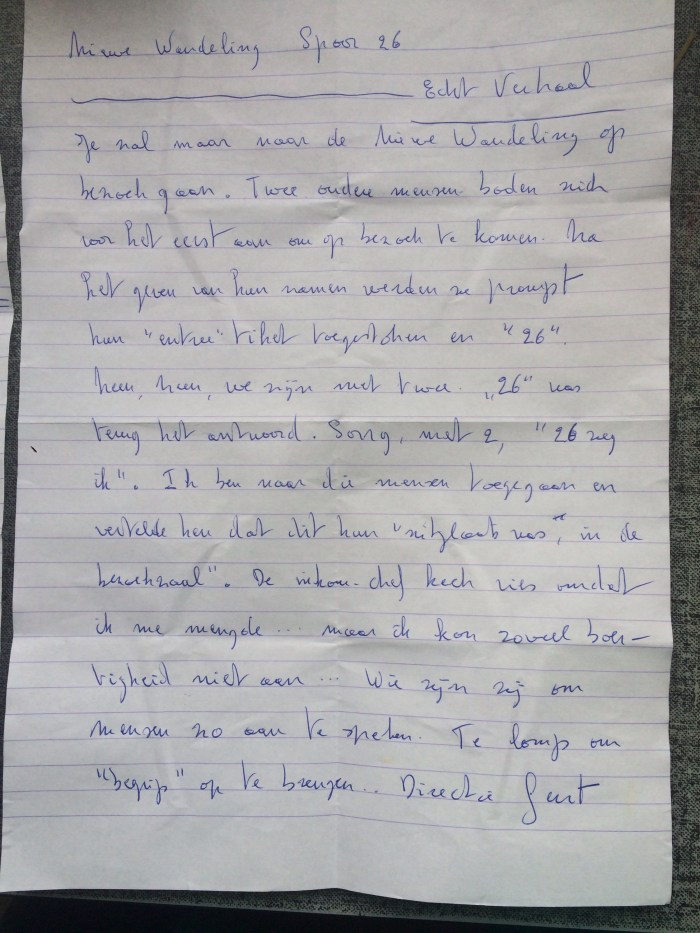 Nieuwe Wandeling Spoor 26
Echt Verhaal
Je zal maar naar de Nieuwe Wandeling op
bezoek gaan. Twee oudere mensen boden zich
voor het eerst aan om op bezoek te komen. Na
het geven van hun namen werden ze prompt
hun "entree" tiket toegestoken en "26".
heen, heen, we zijn met twee. "26" was
terug het antwoord. Sorry, met 2, "26 zeg
ik". Ik ben naar die mensen toegegaan en
vertelde hen dat dit hun "zitplaats was", in de
bezoekzaal". De inkom-chef keek vies omdat
ik me mengde ... maar ik kon zoveel bot-
tigheid niet aan ... Wie zijn zij om
mensen zo aan te spreken. Te lomp om
"begrip" op te brengen.. Directie Gent